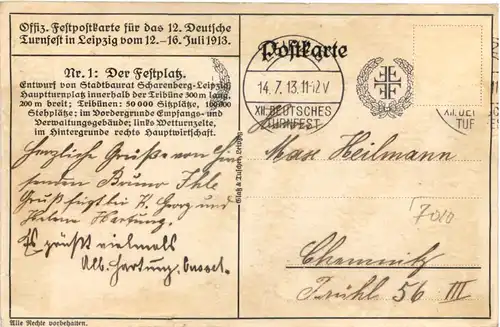 Offiz. Festpostkarte für das 12. Deutsche
Turnfest in Leipzig vom 12.–16. Juli 1913.
Nr. 1: Der Festplatz.
Entwurf von Stadtbaurat Scharenberg-Leipzig
Hauptturnplatz innerhalb der Tribüne 300 m lang,
200 m breit; Tribünen: 50 000 Sitzplätze, 100 000
Stehplätze; im Vordergrunde Empfangs- und
Verwaltungsgebäude; links Wetturnzelte,
im Hintergrunde rechts Hauptwirtschaft.
Herzliche Grüße von
senden Bruno Ihle
Gruß fügt bei K. Georg und
Helene Hartung.
Es grüßt vielmals
Alb. Hartung,
Alle Rechte vorbehalten.
Postkarte
14.7.13.11-12V
XII. DEUTSCHES
TURNFEST
XII. DEU
TUR
Max Heilmann
Chemnitz
56 III